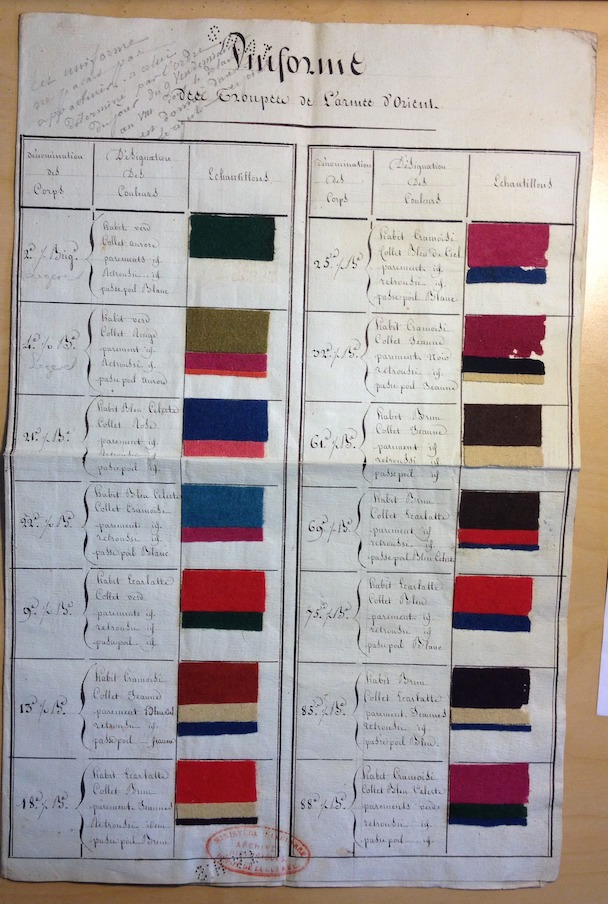 Cet uniforme
ne parait pas
Déterminé par l'Ordre
du jour du
an VIII
Uniforme
Des Troupes de L'armée d'Orient.
dénomination
des
Corps
Désignation
Des
Couleurs
Echantillons
2e ½ Brig.
Légère
habit verd
Collet aurore
parements ig.
Retroussie ig
passepoil Blanc
4e ½ Bde
Légère
habit verd
Collet Rouge
parement ig.
Retroussie ig
passepoil aurore
21e ½ Bde
habit Bleu Celeste
Collet Rose
parement ig
retroussie ig
passepoil ig.
22e ½ Bde
habit Bleu Celeste
Collet Cramoisi
parements ig.
retroussie ig
passe poil Blanc
9e ½ Bde
habit Ecarlatte
Collet verd
parements ig
retroussie ig
passepoil ig
13e ½ Bde
habit Cramoisi
Collet Jeaune
parement
retroussie ig
passepoil Jeaune
18e ½ Bde
habit Ecarlatte
Collet Brun
parements Jeaunes
Retroussie idem
passe poil Brun
dénomination
des
Corps
Désignation
Des
Couleurs
Echantillons
25e ½ Bde
habit Cramoisi
Collet Bleu de Ciel
parement ig
retroussie ig
passepoil Blanc
32e ½ Bde
habit Cramoisi
Collet Jeaune
parements Noir
retroussie ig
passepoil Jeaune
61e ½ Bde
habit Brun
Collet Jeaune
parement ig
retroussi ig
passepoil ig
69e ½ Bde
habit Brun
Collet Ecarlatte
parement ig
retroussie ig
passepoil Bleu Celeste
75e ½ Bde
habit Ecarlatte
Collet Bleu
parement ig.
retroussie ig
passepoil Blanc
85e ½ Bde
habit Brun
Collet Ecarlatte
parement Jeaunes
Retroussie ig
passepoil Bleu
88e ½ Bde
habit Cramoisi
Collet Bleu Celeste
parements verds
retroussie ig
passepoil ig
ARCHIVES